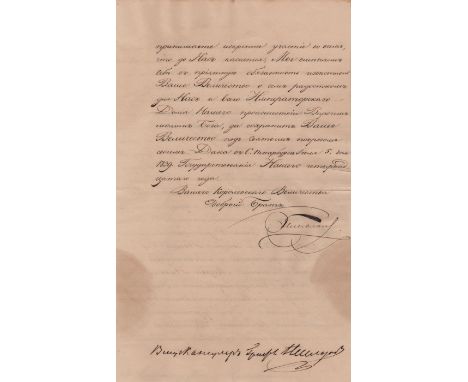 принимаете искреннее участіе во всемъ,
что до Насъ касается, Мы вмѣняемъ
себѣ въ пріятную обязанность извѣстить
Ваше Величество о семъ радостномъ
для Насъ и всего Императорскаго
Дома Нашего происшествіи. Впрочемъ
молимъ Бога, да сохранитъ Ваше
Величество подъ святымъ покровомъ
своимъ. Данъ въ С. Петербургѣ 5.
1839. Государствованія Нашего
цатаго года.
Вашего Королевскаго Величества
добрый Братъ
Николай
Вице Канцлеръ Графъ Нессельродъ